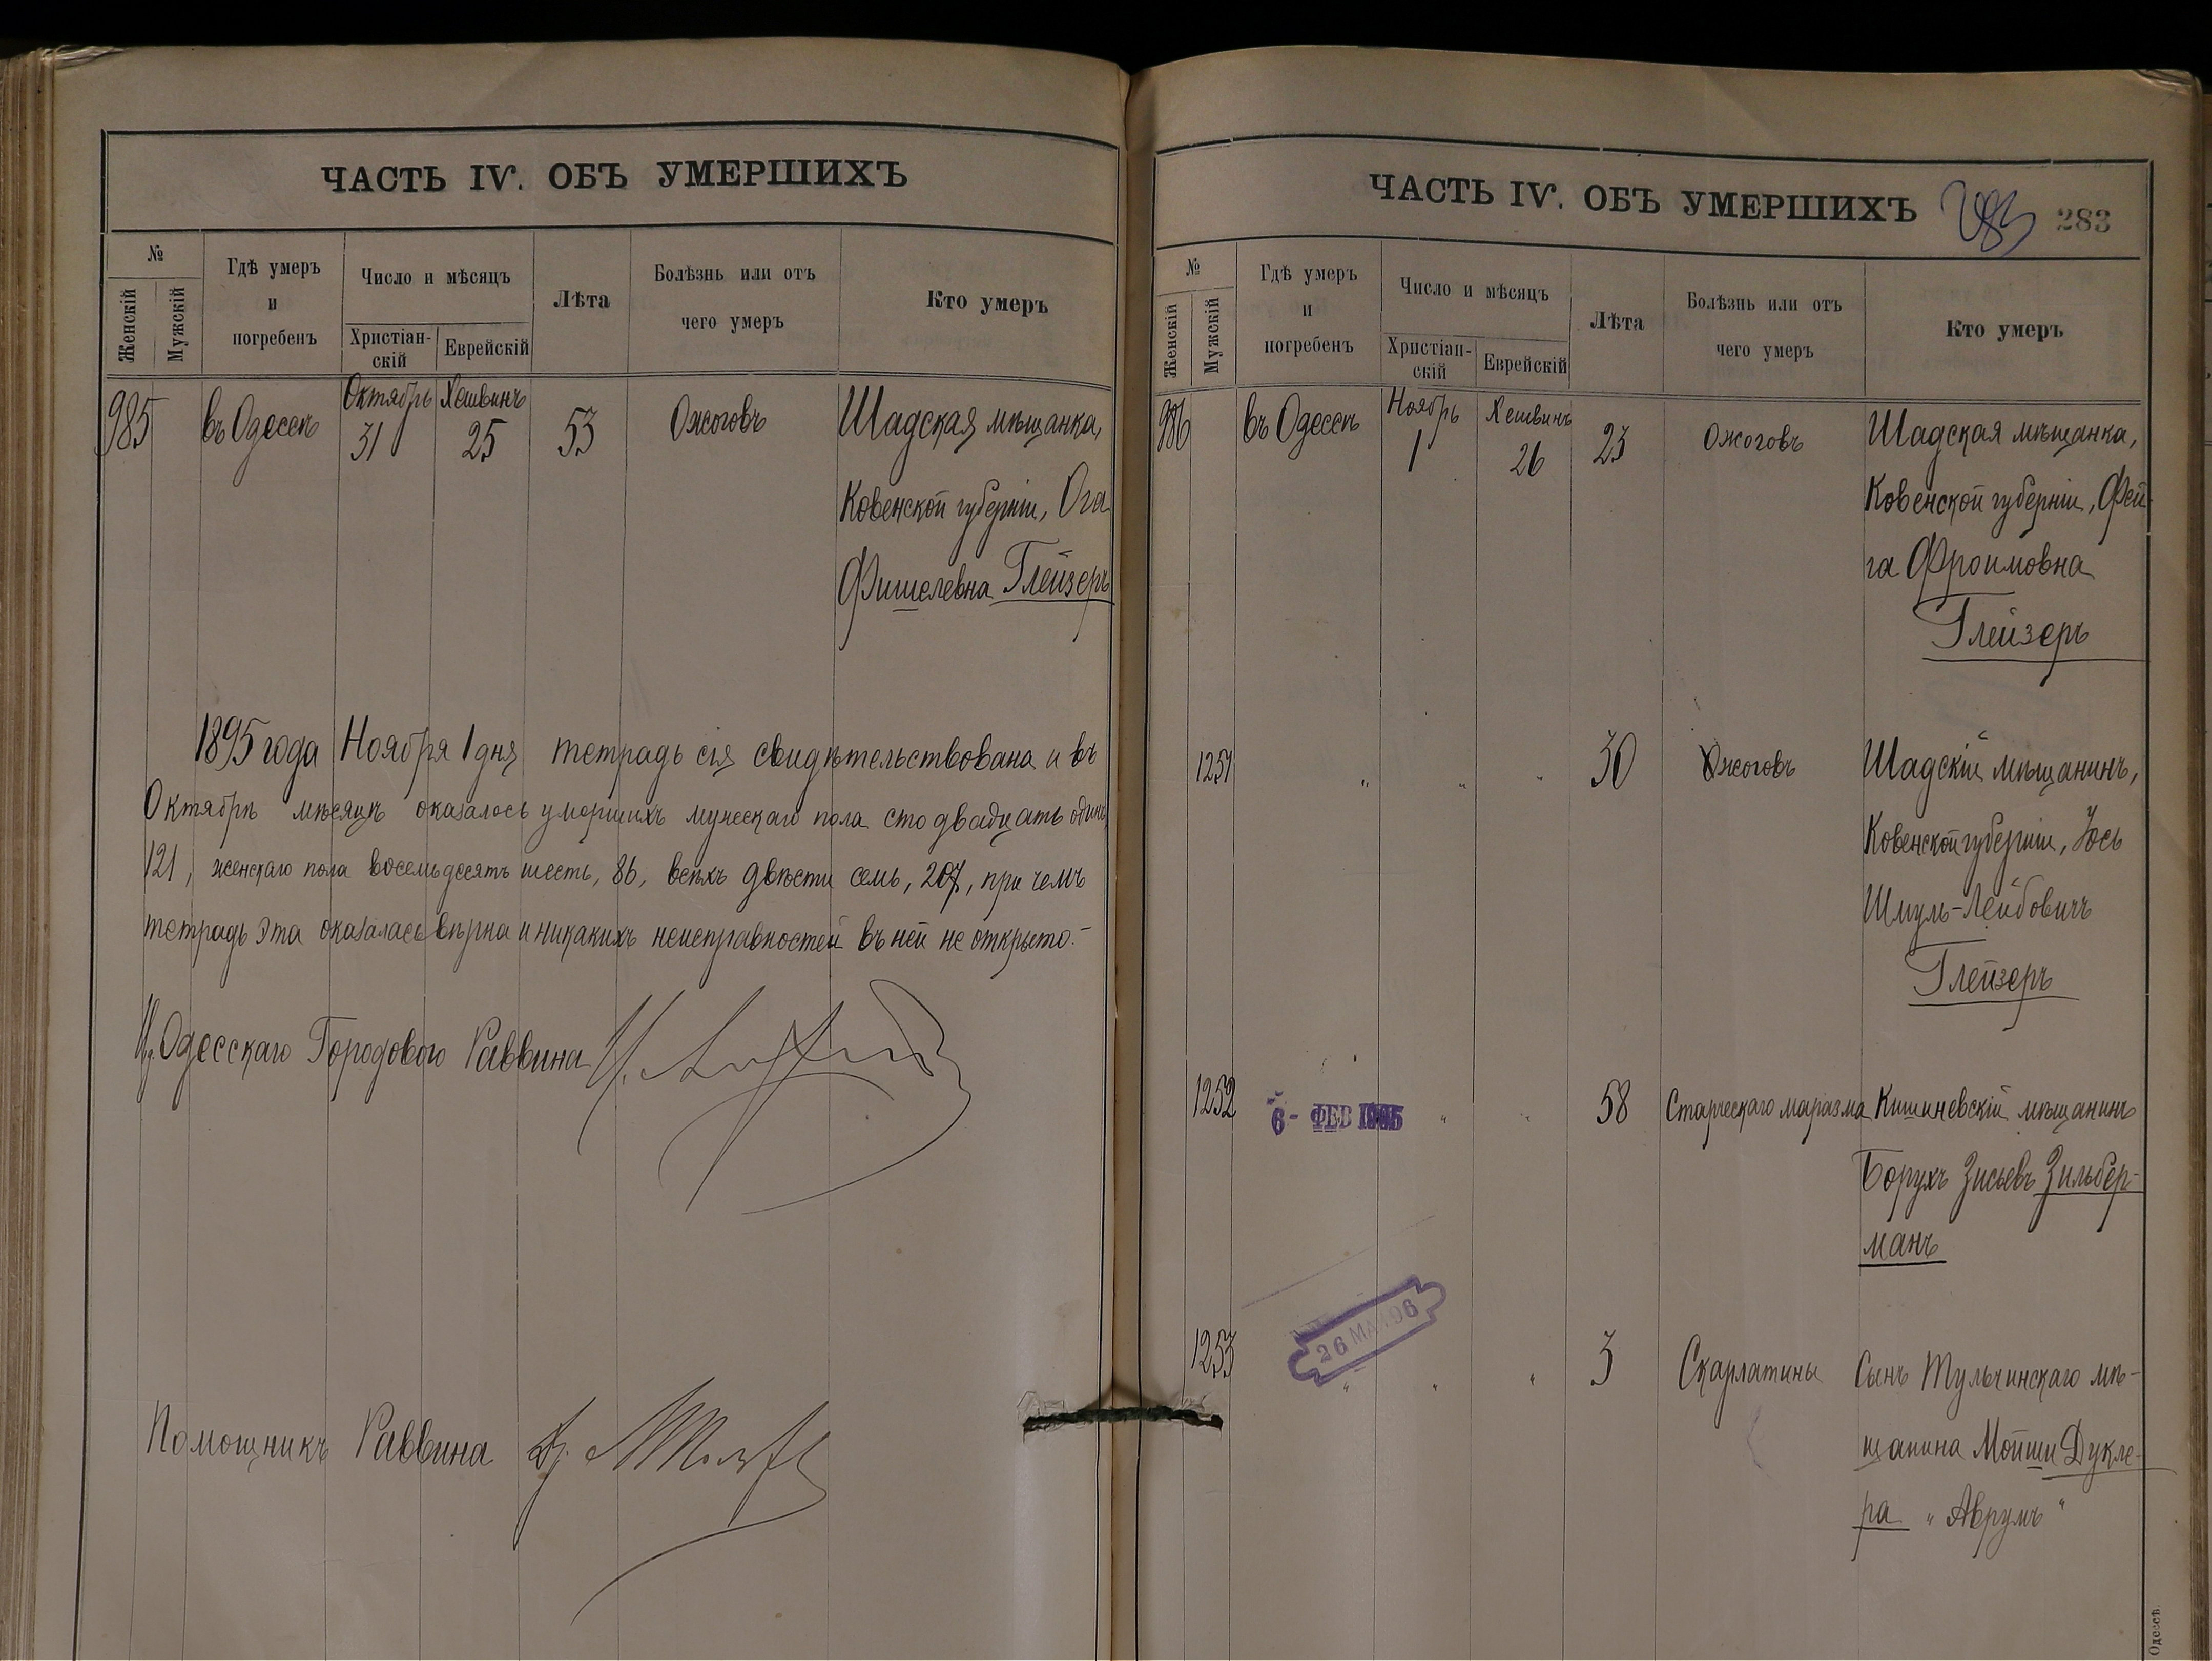 ЧАСТЬ IV. ОБЪ УМЕРШИХЪ
№
Женскій
Мужскій
Гдѣ умеръ
и
погребенъ
Число и мѣсяцъ
Христіан-
скій
Еврейскій
Лѣта
Болѣзнь или отъ
чего умеръ
Кто умеръ
985 въ Одессѣ Октябрь 31 Хешвинъ 25 53 Ожоговъ Шадская мѣщанка,
Ковенской губерніи, Ога
Фишелевна Глейзеръ
1895 года Ноября 1 дня тетрадь сія свидѣтельствована и въ
Октябрѣ мѣсяцѣ оказалось умершихъ мужескаго пола сто двадцать одинъ,
121, женскаго пола восемьдесятъ шесть, 86, всѣхъ двѣсти семь, 207, при чемъ
тетрадь эта оказалась вѣрна и никакихъ неисправностей въ ней не открыто.-
Одесскаго Городового Раввина
Помощникъ Раввина
ЧАСТЬ IV. ОБЪ УМЕРШИХЪ 283 283
№
Женскій
Мужскій
Гдѣ умеръ
и
погребенъ
Число и мѣсяцъ
Христіан-
скій
Еврейскій
Лѣта
Болѣзнь или отъ
чего умеръ
Кто умеръ
986 въ Одессѣ Ноябрь 1 Хешвинъ 26 23 Ожоговъ Шадская мѣщанка,
Ковенской губерніи, Фей-
га Фроимовна
Глейзеръ
1251 " " " 30 Ожоговъ Шадскій мѣщанинъ,
Ковенской губерніи, Іось
Шмуль-Лейбовичъ
Глейзеръ
1252 6- ФЕВ " " 58 Старческаго маразма Кишиневскій мѣщанинъ
Борухъ Зисьевъ Зильбер-
манъ
26 МАЯ 96
1253 " " " 3 Скарлатины Сынъ Тульчинскаго мѣ-
щанина Мойши Дукле-
ра "Аврумъ"
Одессѣ.